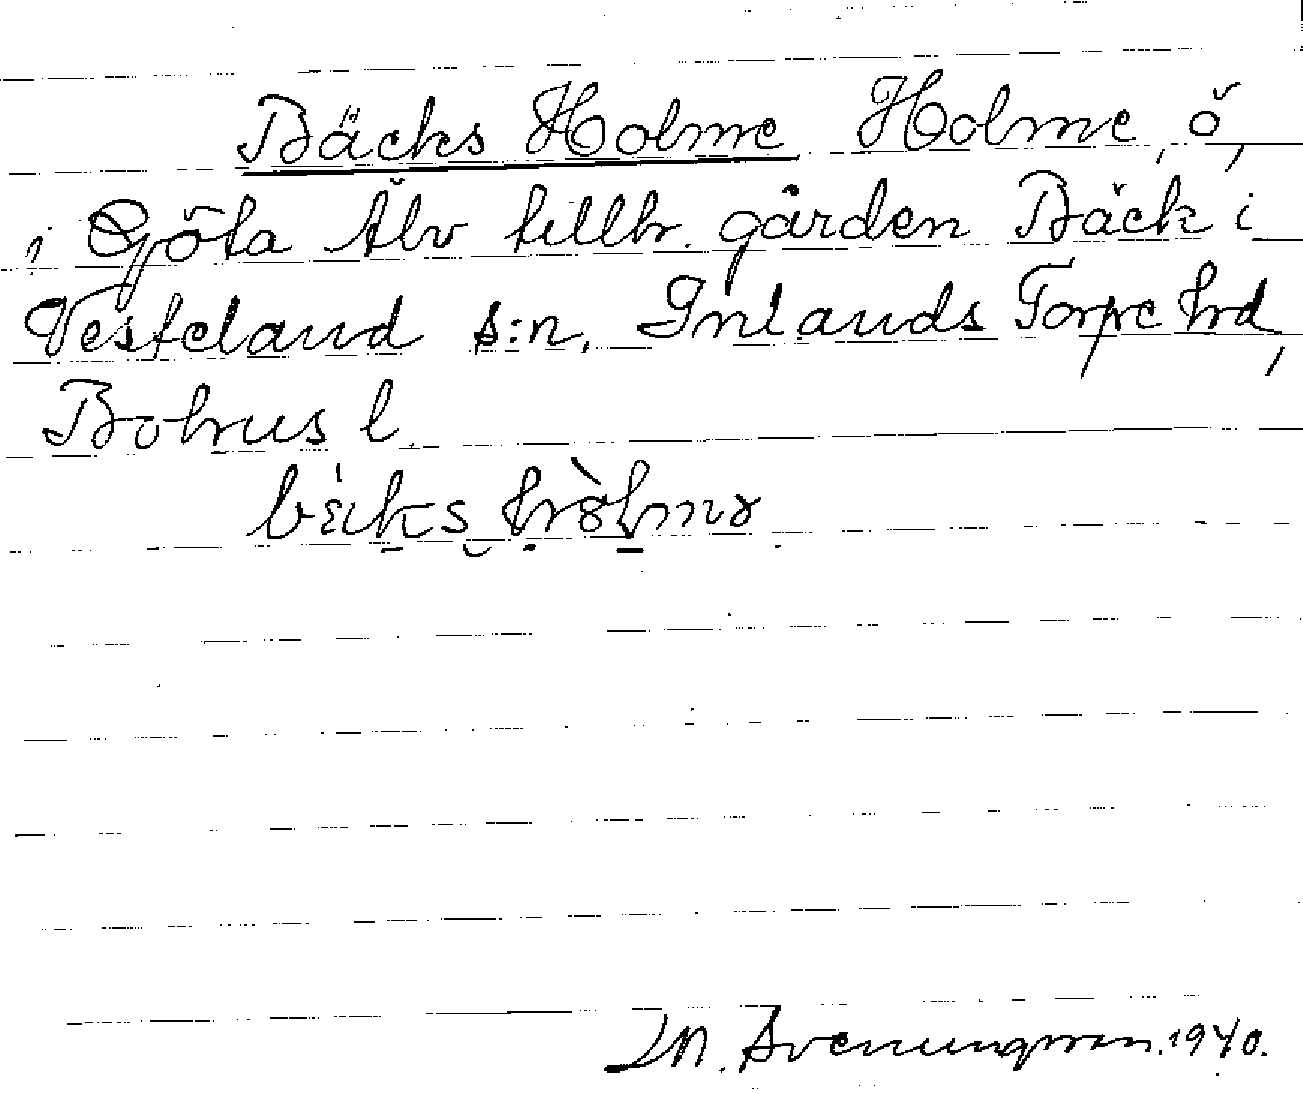 Bäcks Holme Holme, ö,
i Göta Älv tillhr. gården Bäck i
Vesteland s:n, Inlands Torpe hrd,
Bohus l.
M. Svenungsson. 1940.